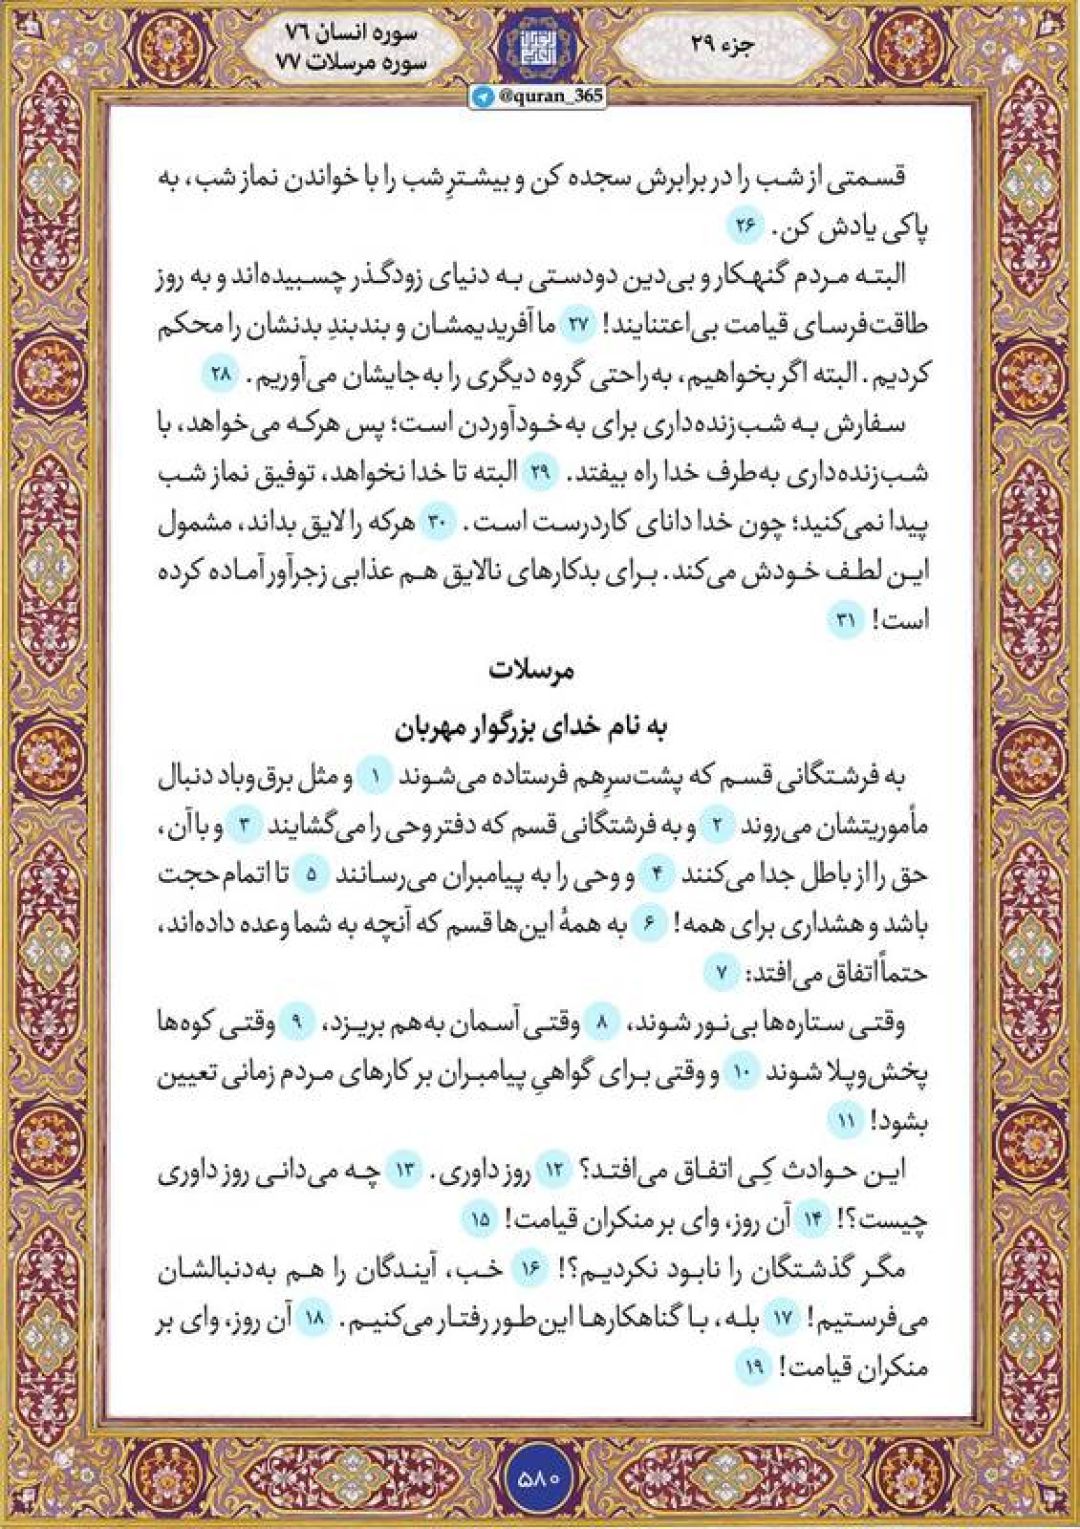 جزء ۲۹
سوره انسان ۷۶
سوره مرسلات ۷۷
@quran_365
قسمتی از شب را در برابرش سجده کن و بیشترِ شب را با خواندن نماز شب، به
پاکی یادش کن. ۲۶
البته مردم گنهکار و بی‌دین دودستی به دنیای زودگذر چسبیده‌اند و به روز
طاقت‌فرسای قیامت بی‌اعتنایند! ۲۷ ما آفریدیمشان و بندبندِ بدنشان را محکم
کردیم. البته اگر بخواهیم، به‌راحتی گروه دیگری را به‌جایشان می‌آوریم. ۲۸
سفارش به شب‌زنده‌داری برای به‌خودآوردن است؛ پس هرکه می‌خواهد، با
شب‌زنده‌داری به‌طرف خدا راه بیفتد. ۲۹ البته تا خدا نخواهد، توفیق نماز شب
پیدا نمی‌کنید؛ چون خدا دانای کاردرست است. ۳۰ هرکه را لایق بداند، مشمول
این لطف خودش می‌کند. برای بدکارهای نالایق هم عذابی زجرآور آماده کرده
است! ۳۱
مرسلات
به نام خدای بزرگوار مهربان
به فرشتگانی قسم که پشت‌سرِهم فرستاده می‌شوند ۱ و مثل برق‌وباد دنبال
مأموریتشان می‌روند ۲ و به فرشتگانی قسم که دفتر وحی را می‌گشایند ۳ و با آن،
حق را از باطل جدا می‌کنند ۴ و وحی را به پیامبران می‌رسانند ۵ تا اتمام حجت
باشد و هشداری برای همه! ۶ به همهٔ این‌ها قسم که آنچه به شما وعده داده‌اند،
حتماً اتفاق می‌افتد: ۷
وقتی ستاره‌ها بی‌نور شوند، ۸ وقتی آسمان به‌هم بریزد، ۹ وقتی کوه‌ها
پخش‌وپلا شوند ۱۰ و وقتی برای گواهیِ پیامبران بر کارهای مردم زمانی تعیین
بشود! ۱۱
این حوادث کِی اتفاق می‌افتد؟ ۱۲ روز داوری. ۱۳ چه می‌دانی روز داوری
چیست؟! ۱۴ آن روز، وای بر منکران قیامت! ۱۵
مگر گذشتگان را نابود نکردیم؟! ۱۶ خب، آیندگان را هم به‌دنبالشان
می‌فرستیم! ۱۷ بله، با گناهکارها این‌طور رفتار می‌کنیم. ۱۸ آن روز، وای بر
منکران قیامت! ۱۹
۵۸۰